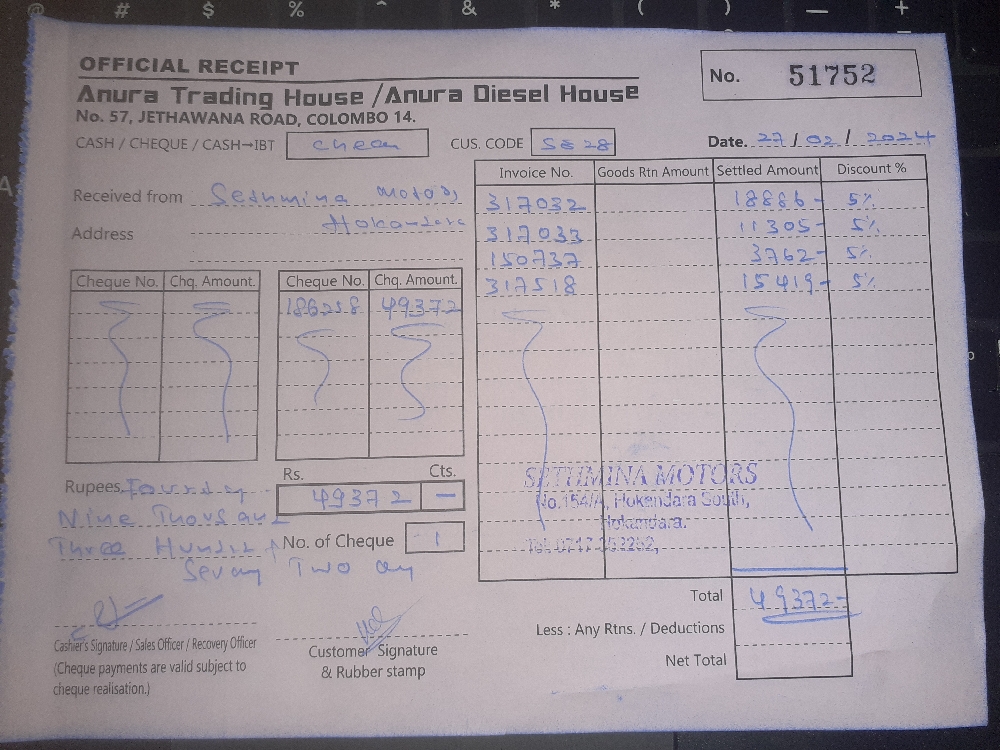 OFFICIAL RECEIPT
No. 51752
Anura Trading House /Anura Diesel House
No. 57, JETHAWANA ROAD, COLOMBO 14.
CASH / CHEQUE / CASH→IBT
CUS. CODE SE 28
Date. 27 / 02 / 2024
Received from Sethmina Motors
Address Hokandara
Invoice No. Goods Rtn Amount Settled Amount Discount %
317032 18886- 5%
317033 11305- 5%
150737 3762- 5%
317518 15419- 5%
Cheque No. Chq. Amount. Cheque No. Chq. Amount.
186258 49372
Rs. Cts.
49372 —
Rupees
Nine Thousand
Three
Two
No. of Cheque 1
SETHMINA MOTORS
No.154/A, Hokandara South,
Hokandara.
Total 49372-
Less : Any Rtns. / Deductions
Net Total
Cashier's Signature / Sales Officer / Recovery Officer
(Cheque payments are valid subject to
cheque realisation.)
Customer Signature
& Rubber stamp